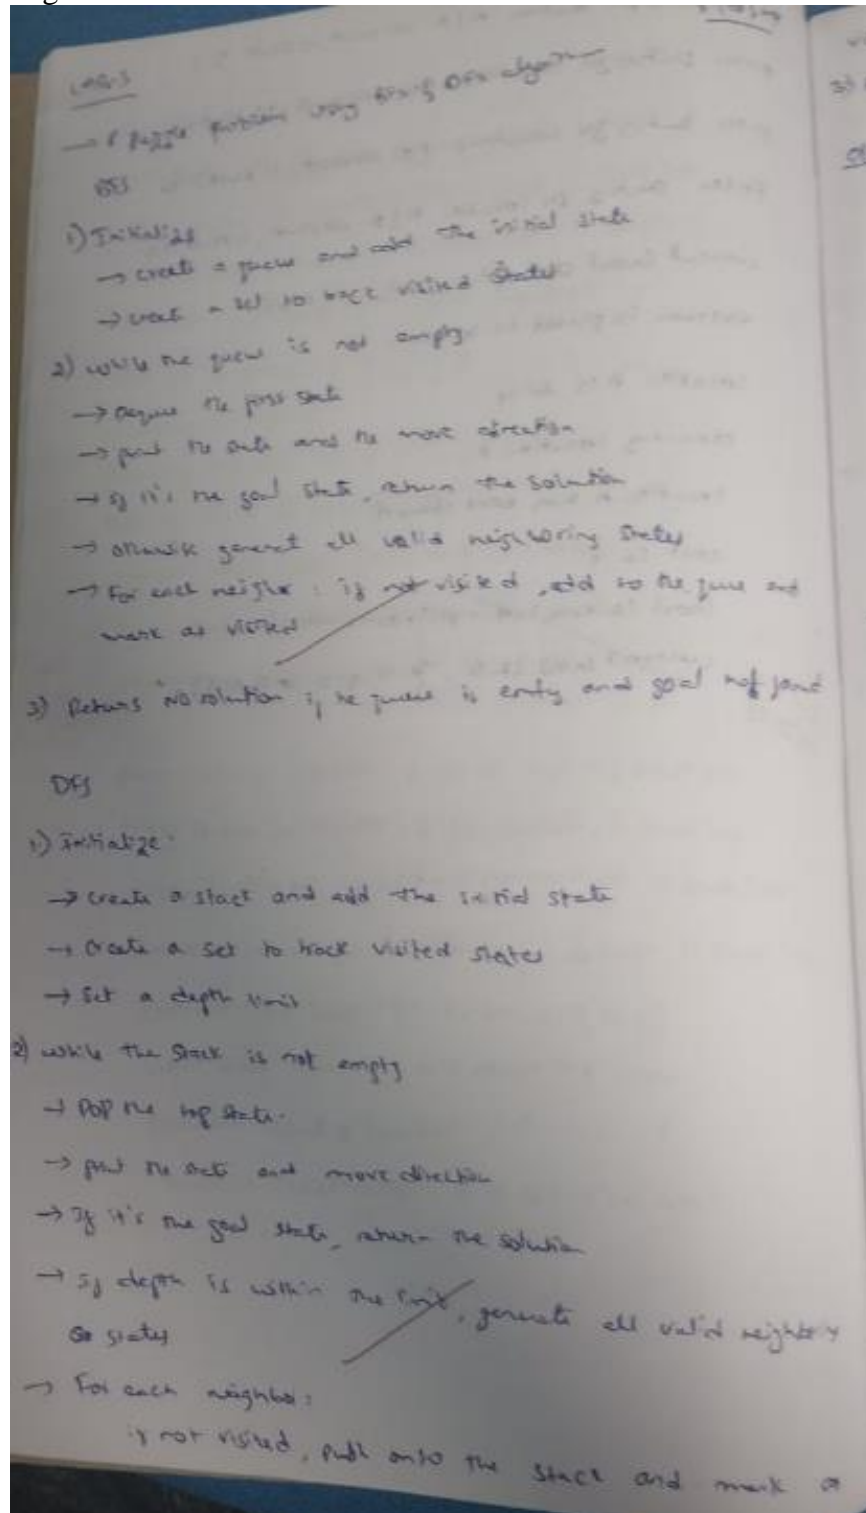 LAB-3
→ 8 puzzle problem using BFS & DFS algorithm
BFS
1) Initialize
→ create a queue and add the initial state
→ create a set to track visited states
2) while the queue is not empty
→ Dequeue the first state
→ print the state and the move direction
→ if it's the goal state, return the solution
→ otherwise generate all valid neighboring states
→ For each neighbor : if not visited, add to the queue and
mark as visited
3) Returns "No solution" if the queue is empty and goal not found
DFS
1) Initialize
→ create a stack and add the initial state
→ Create a set to track visited states
→ Set a depth limit
2) while the stack is not empty
→ POP the top state.
→ print the state and move direction
→ If it's the goal state, return the solution
→ if depth is within the limit, generate all valid neighboring
states
→ For each neighbor:
if not visited, push onto the stack and mark a